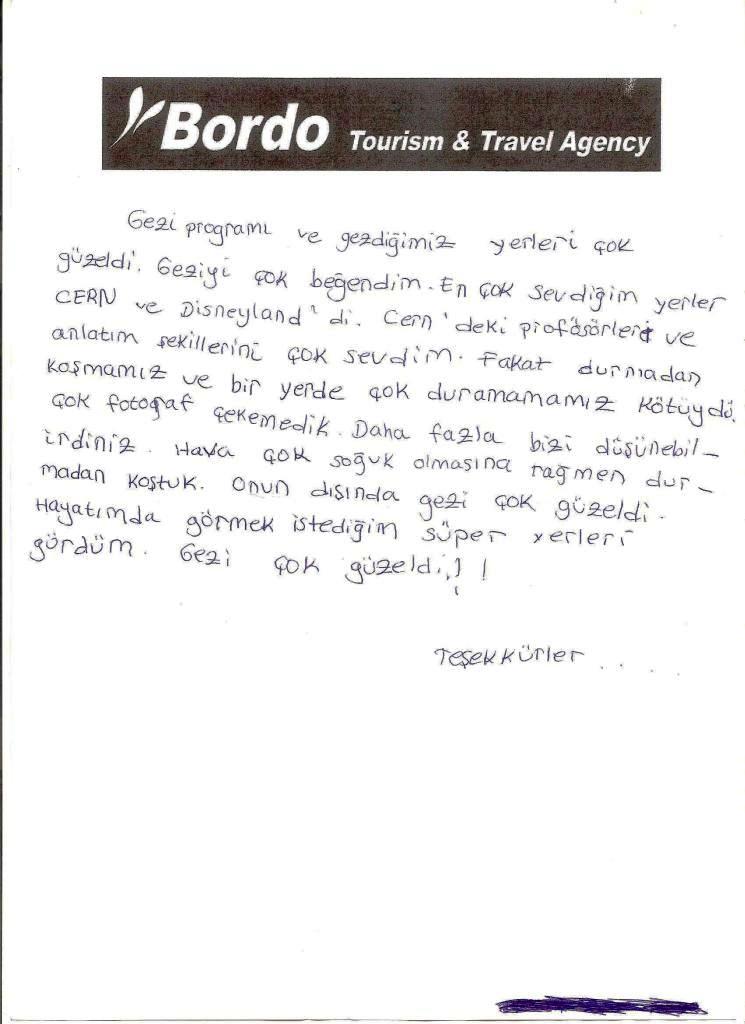 Bordo Tourism & Travel Agency
Gezi programı ve gezdiğimiz yerleri çok
güzeldi. Geziyi çok beğendim. En çok sevdiğim yerler
CERN ve Disneyland'di. Cern'deki profösörleri ve
anlatım şekillerini çok sevdim. Fakat durmadan
koşmamız ve bir yerde çok duramamamız kötüydü.
çok fotoğraf çekemedik. Daha fazla bizi düşünebil-
irdiniz. Hava çok soğuk olmasına rağmen dur-
madan koştuk. Onun dışında gezi çok güzeldi.
Hayatımda görmek istediğim süper yerleri
gördüm. Gezi çok güzeldi!!!
Teşekkürler .....